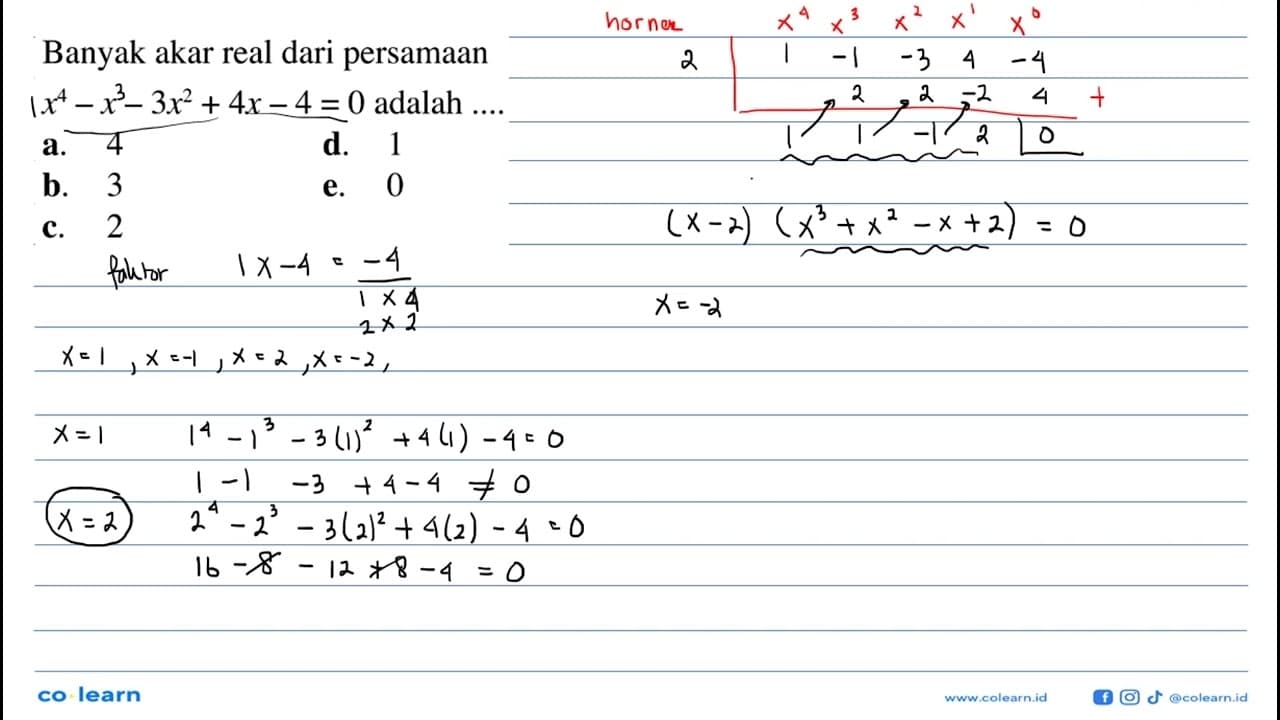 Banyak akar real dari persamaan
1x⁴ – x³ – 3x² + 4x – 4 = 0 adalah ....
a. 4 d. 1
b. 3 e. 0
c. 2
faktor 1 x – 4 = –4
1 x 4
2 x 2
x = 1 , x = –1 , x = 2 , x = –2 ,
x = 1 1⁴ – 1³ – 3(1)² + 4(1) – 4 = 0
1 – 1 – 3 + 4 – 4 ≠ 0
x = 2 2⁴ – 2³ – 3(2)² + 4(2) – 4 = 0
16 – 8 – 12 + 8 – 4 = 0
horner x⁴ x³ x² x¹ x⁰
2 1 –1 –3 4 –4
2 2 –2 4 +
1 1 –1 2 0
(x – 2) (x³ + x² – x + 2) = 0
x = –2
co learn
www.colearn.id @colearn.id